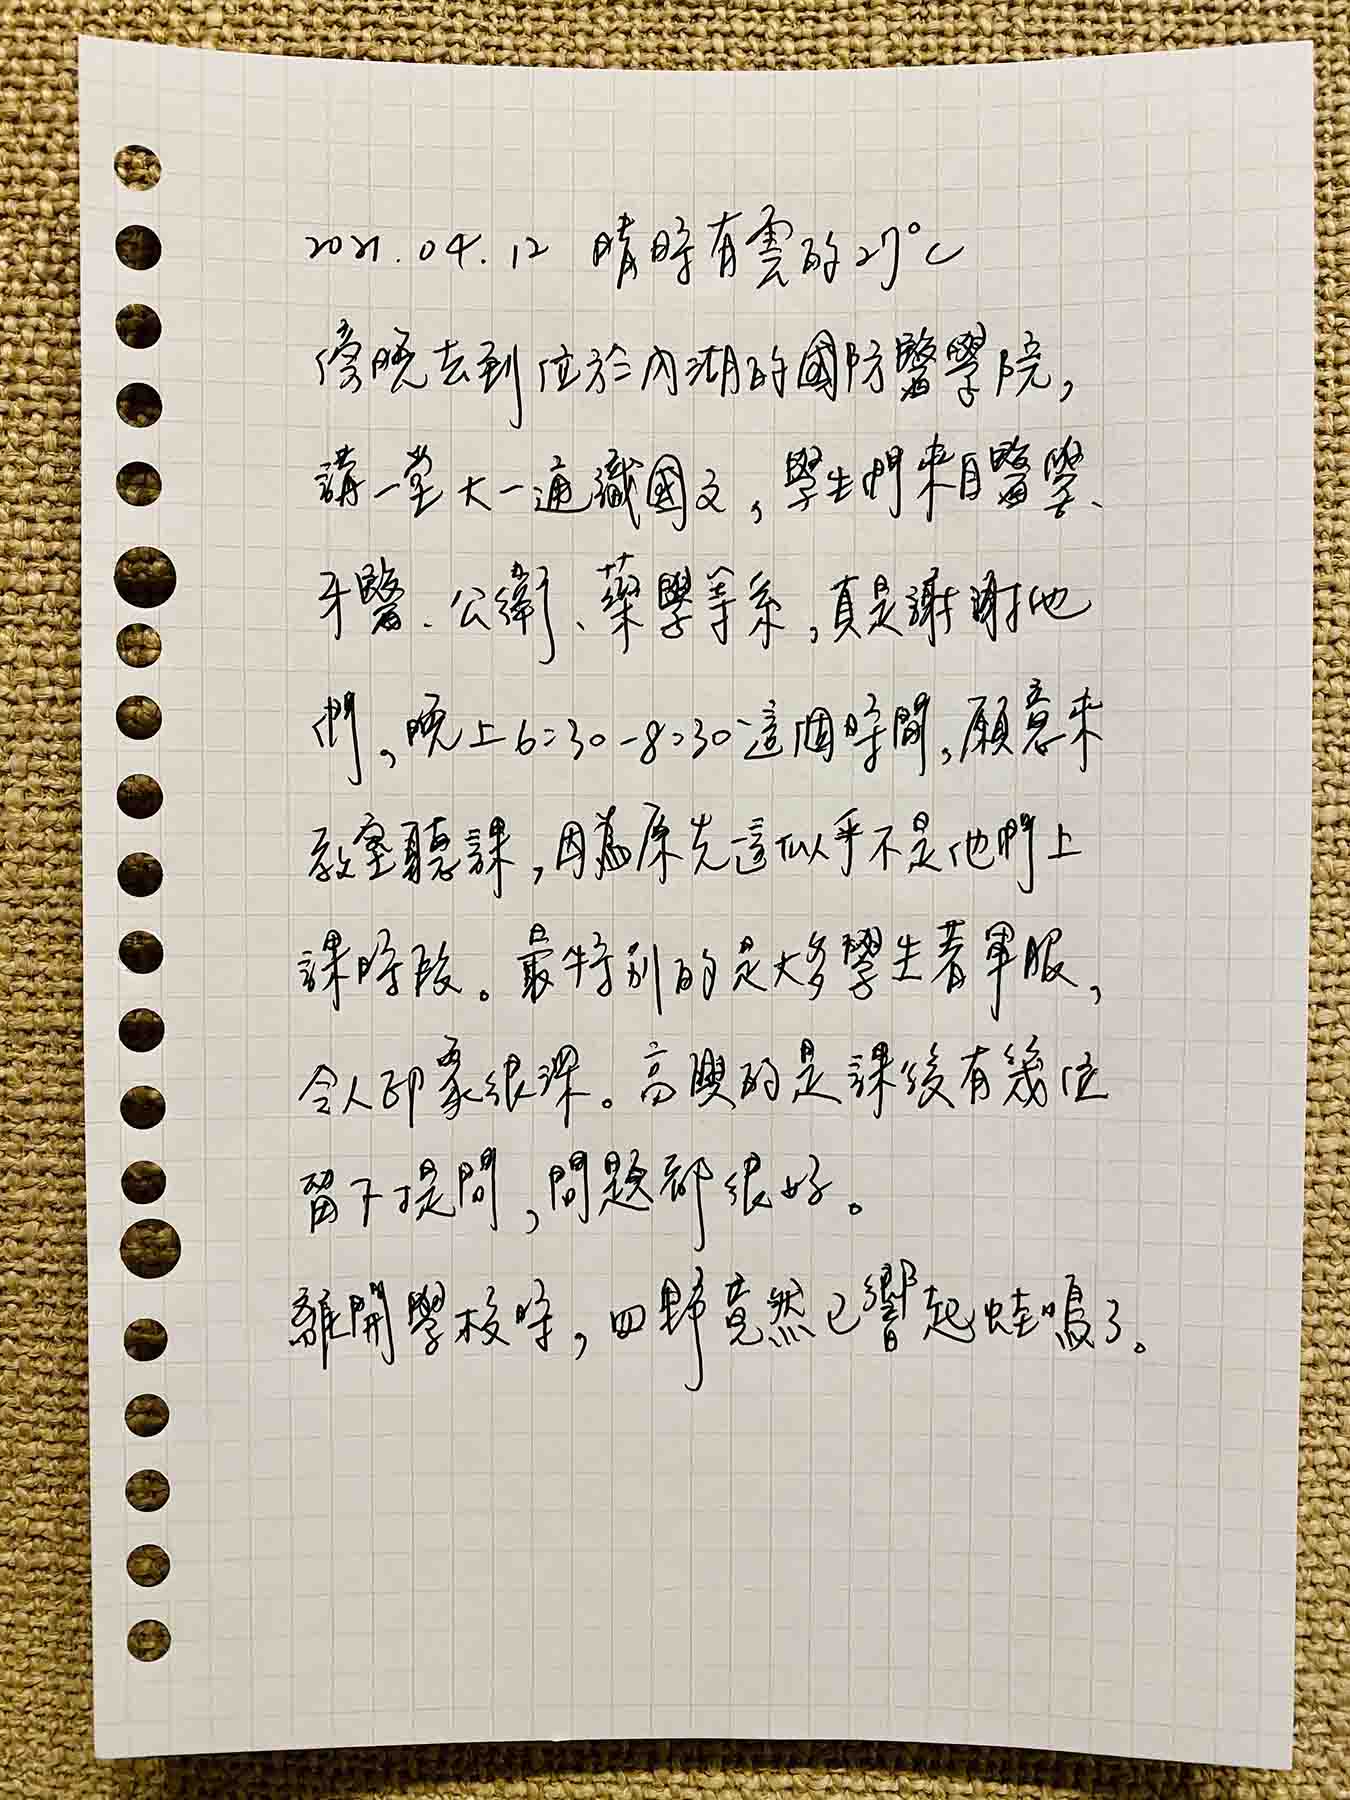 2021.04.12 晴時有雲的27°C
傍晚去到位於內湖的國防醫學院,
講一堂大一通識國文,學生們來自醫學、
牙醫、公衛、藥學等系,真是謝謝他
們,晚上6:30-8:30這個時間,願意來
教室聽課,因為原先這似乎不是他們上
課時段。最特別的是大多學生著軍服,
令人印象很深。高興的是課後有幾位
留下提問,問題都很好。
離開學校時,四野竟然已響起蛙鳴了。